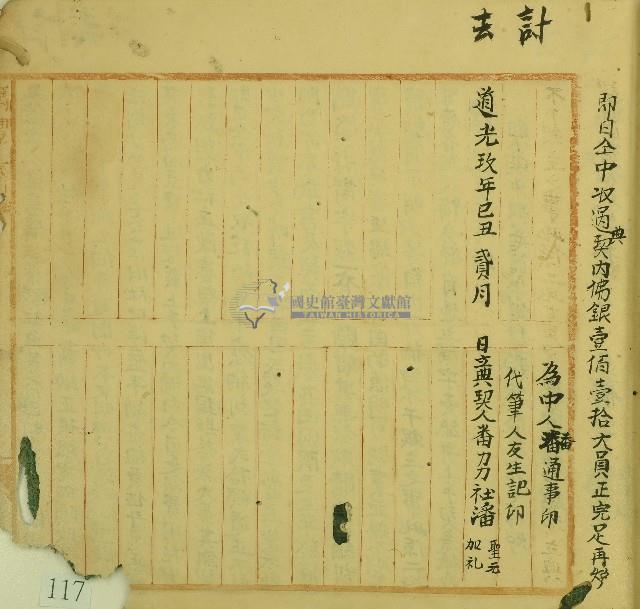 計去
即日仝中收過典契內佛銀壹佰壹拾大員正完足再炤
為中人番通事印
代筆人友生記印
道光玖年己丑貳月 日立典契人番刀社潘聖元
加礼
國史館臺灣文獻館
TAIWAN HISTORICA
117